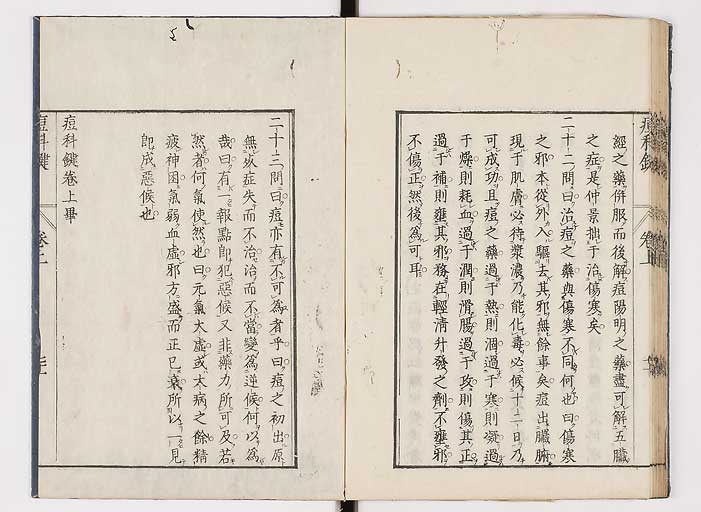 經之藥併服而後解痘陽明之藥盡可解五臟
之症是仲景拙于治傷寒矣
二十二問曰治痘之藥與傷寒不同何也曰傷寒
之邪本從外入驅去其邪無餘事矣痘出臟腑
現于肌膚必待漿濃乃能化毒必候十二日乃
可成功且痘之藥過于熱則涸過于寒則凝過
于燥則耗血過于潤則滑腸過于攻則傷其正
過于補則壅其邪務在輕清升發之劑不壅邪
不傷正然後爲可耳
二十三問曰痘亦有不可爲者乎曰痘之初出原
無疢症失而不治治而不當變爲逆候何以爲
哉曰有一報點即犯惡候又非藥力所可及若
然者何氣使然也曰元氣大虛或大病之餘精
疲神困氣弱血虛邪方盛而正已衰所以一見
即成惡候也
痘科鍵卷上畢
痘科鍵